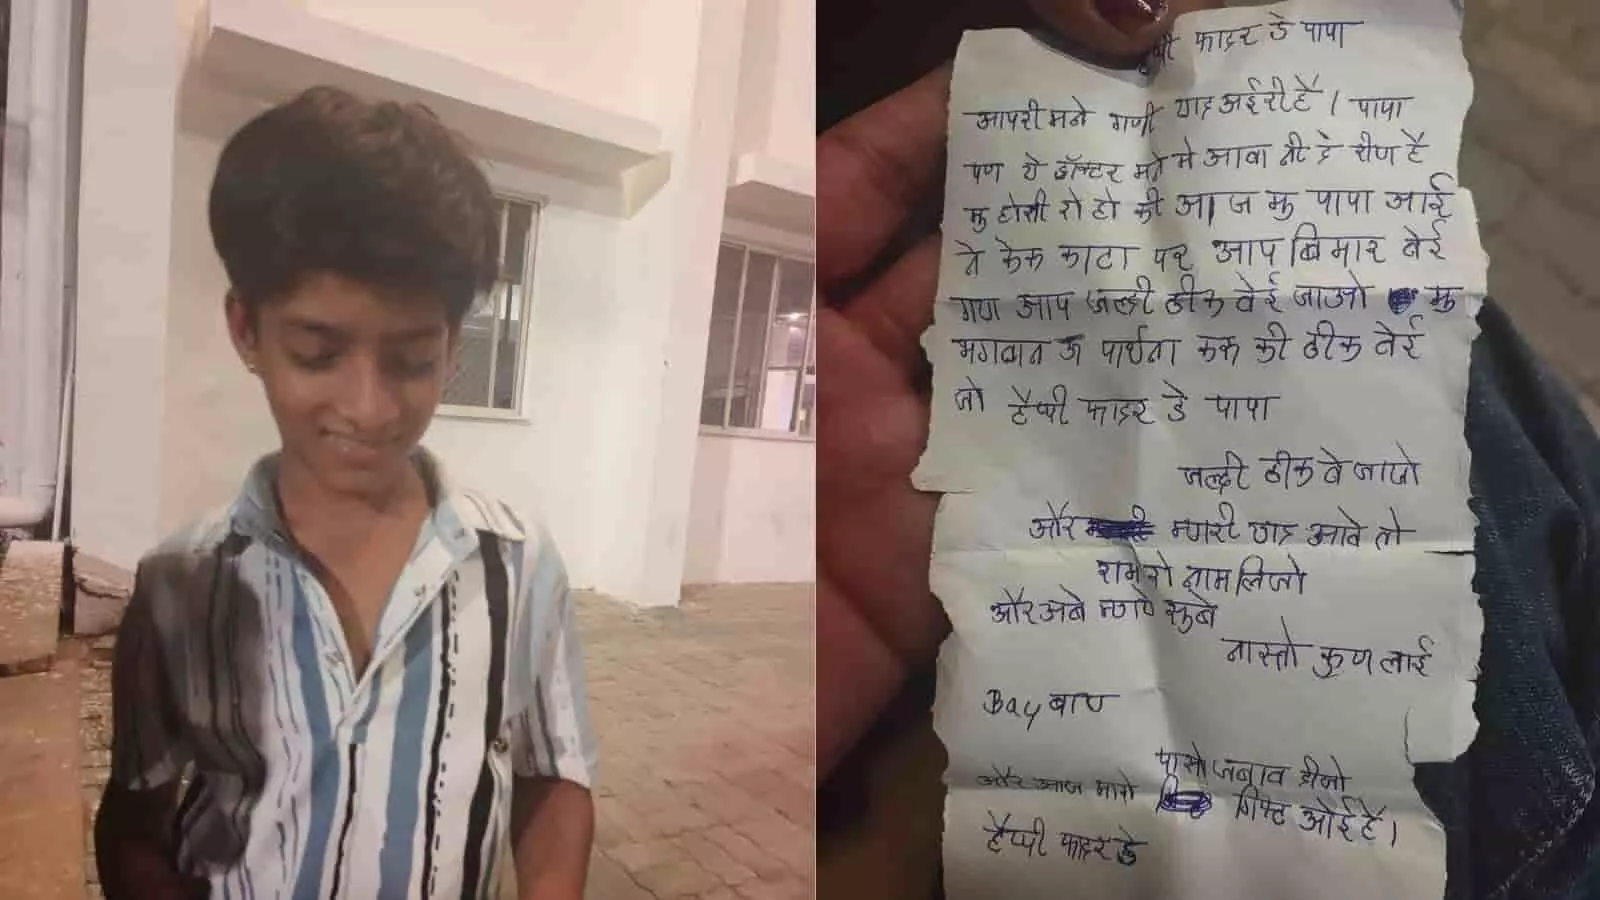 हैप्पी फादर डे पापा
आपरी मने गणी याद अईरी है। पापा
पण ये डॉक्टर मने मे आवा नी दे रीण है
मु होची रो हो की आज मु पापा आई
ने केक काटा पर आप बिमार वेई
गण आप जल्दी ठीक वेई जाओ मु
भगवान उ पार्थना करू की ठीक वेई
जो हैप्पी फादर डे पापा
जल्दी ठीक वे जाजो
और म्णारी याद आवे तो
राम रो नाम लिजो
और अबे म्णारे सुबे
नास्तो कुण लाई
Bay बाय
पासो जबाव दीजो
और आज मारो गिफ्ट ओई है।
हैप्पी फादर डे